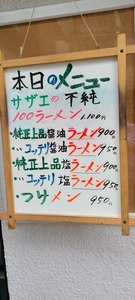 本日のメニュー
サザエの不純
100ラーメン 1.100円
・純正上品醤油ラーメン900円
・〃コッテリ醤油ラーメン950円
・純正上品塩ラーメン900円
・〃コッテリ塩ラーメン950円
・つけメン 950円